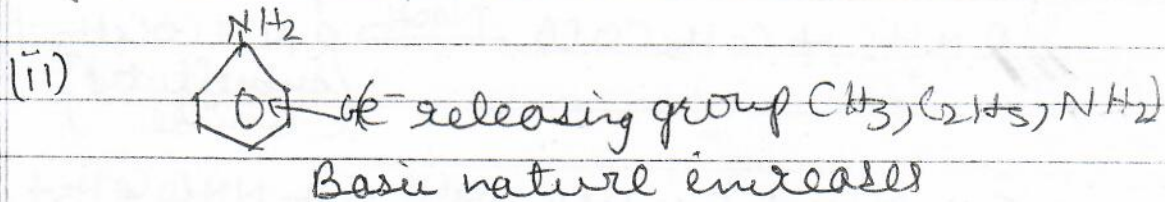 NH2
(ii) e⁻ releasing group CH3, C2H5, NH2)
Basic nature increases